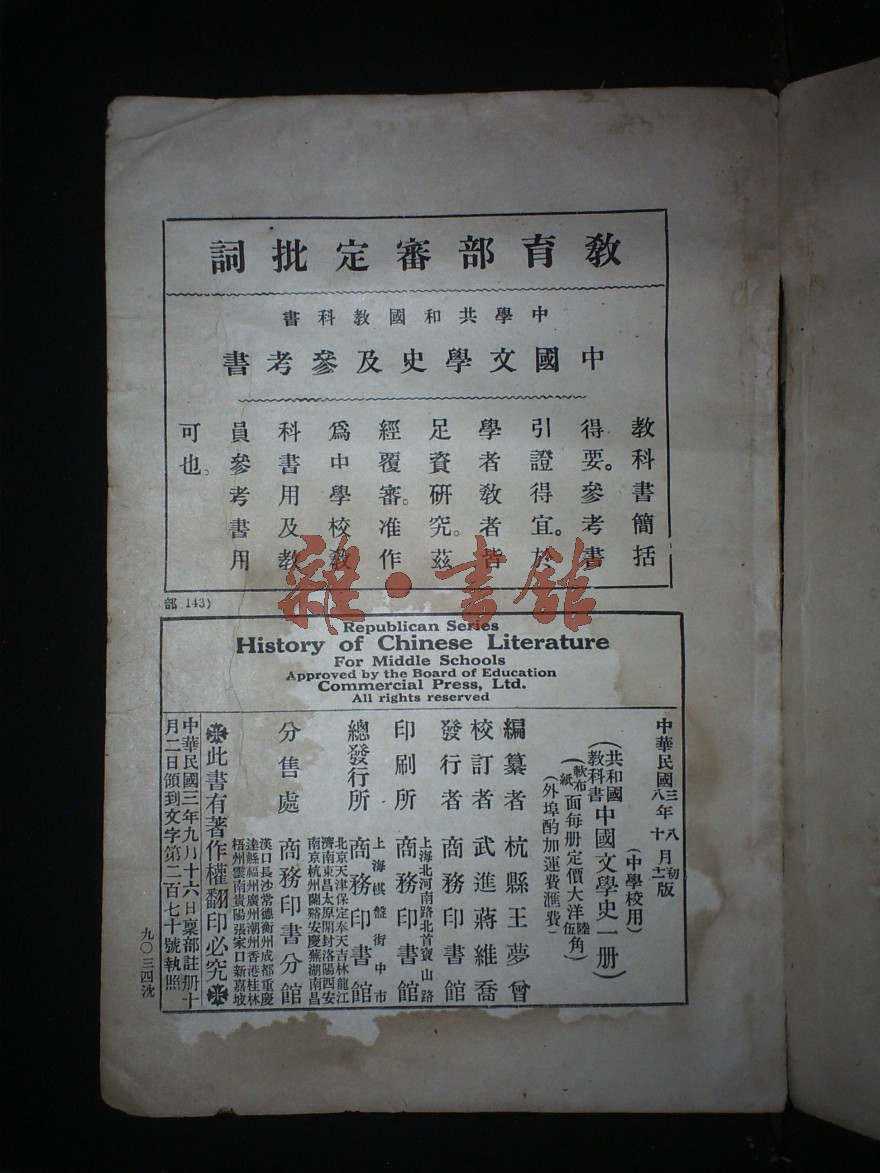 教育部審定批詞
中學共和國教科書
中國文學史及參考書
教科書簡括
得要。參考書
引證得宜。於
學者教者皆
足資研究。茲
經覆審。准作
爲中學校教
科書用及教
員參考書用
可也。
部 143)
雜·書舘
Republican Series
History of Chinese Literature
For Middle Schools
Approved by the Board of Education
Commercial Press, Ltd.
All rights reserved
中華民國三年八月初版
八年十二
(中學校用)
(共和國教科書中國文學史一册)
(軟布面每册定價大洋陸角)
紙 伍
(外埠酌加運費滙費)
編纂者 杭縣王夢曾
校訂者 武進蔣維喬
發行者 商務印書館
上海北河南路北首寶山路
印刷所 商務印書館
上海棋盤街中市
總發行所 商務印書館
北京天津保定奉天吉林龍江
濟南東昌太原開封洛陽西安
南京杭州蘭谿安慶蕪湖南昌
分售處 商務印書分館
漢口長沙常德衡州成都重慶
達縣福州廣州潮州香港桂林
梧州雲南貴陽張家口新嘉坡
此書有著作權翻印必究
中華民國三年九月十六日稟部註册十
月二日領到文字第二百七十號執照
九〇三四沈